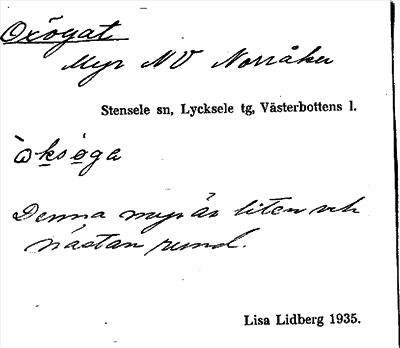 Oxögat
Myr NV Norråker
Stensele sn, Lycksele tg, Västerbottens l.
òksøga
Denna myr är liten och
nästan rund.
Lisa Lidberg 1935.